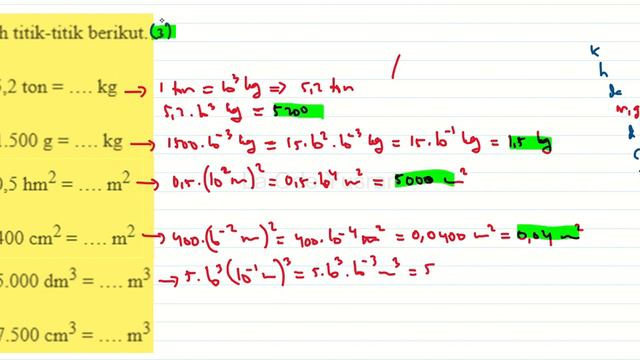 h titik-titik berikut. (3)
5,2 ton = .... kg → 1 ton = 10³ kg ⇒ 5,2 ton
5,2 . 10³ kg = 5200
1.500 g = .... kg → 1500 . 10⁻³ kg = 15 . 10² . 10⁻³ kg = 15 . 10⁻¹ kg = 1,5 kg
0,5 hm² = .... m² → 0,5 . (10² m)² = 0,5 . 10⁴ m² = 5000 m²
400 cm² = .... m² → 400 . (10⁻² m)² = 400 . 10⁻⁴ m² = 0,0400 m² = 0,04 m²
5.000 dm³ = .... m³ → 5 . 10³ (10⁻¹ m)³ = 5 . 10³ . 10⁻³ m³ = 5
7.500 cm³ = .... m³
k
h
da
m, g
d
c